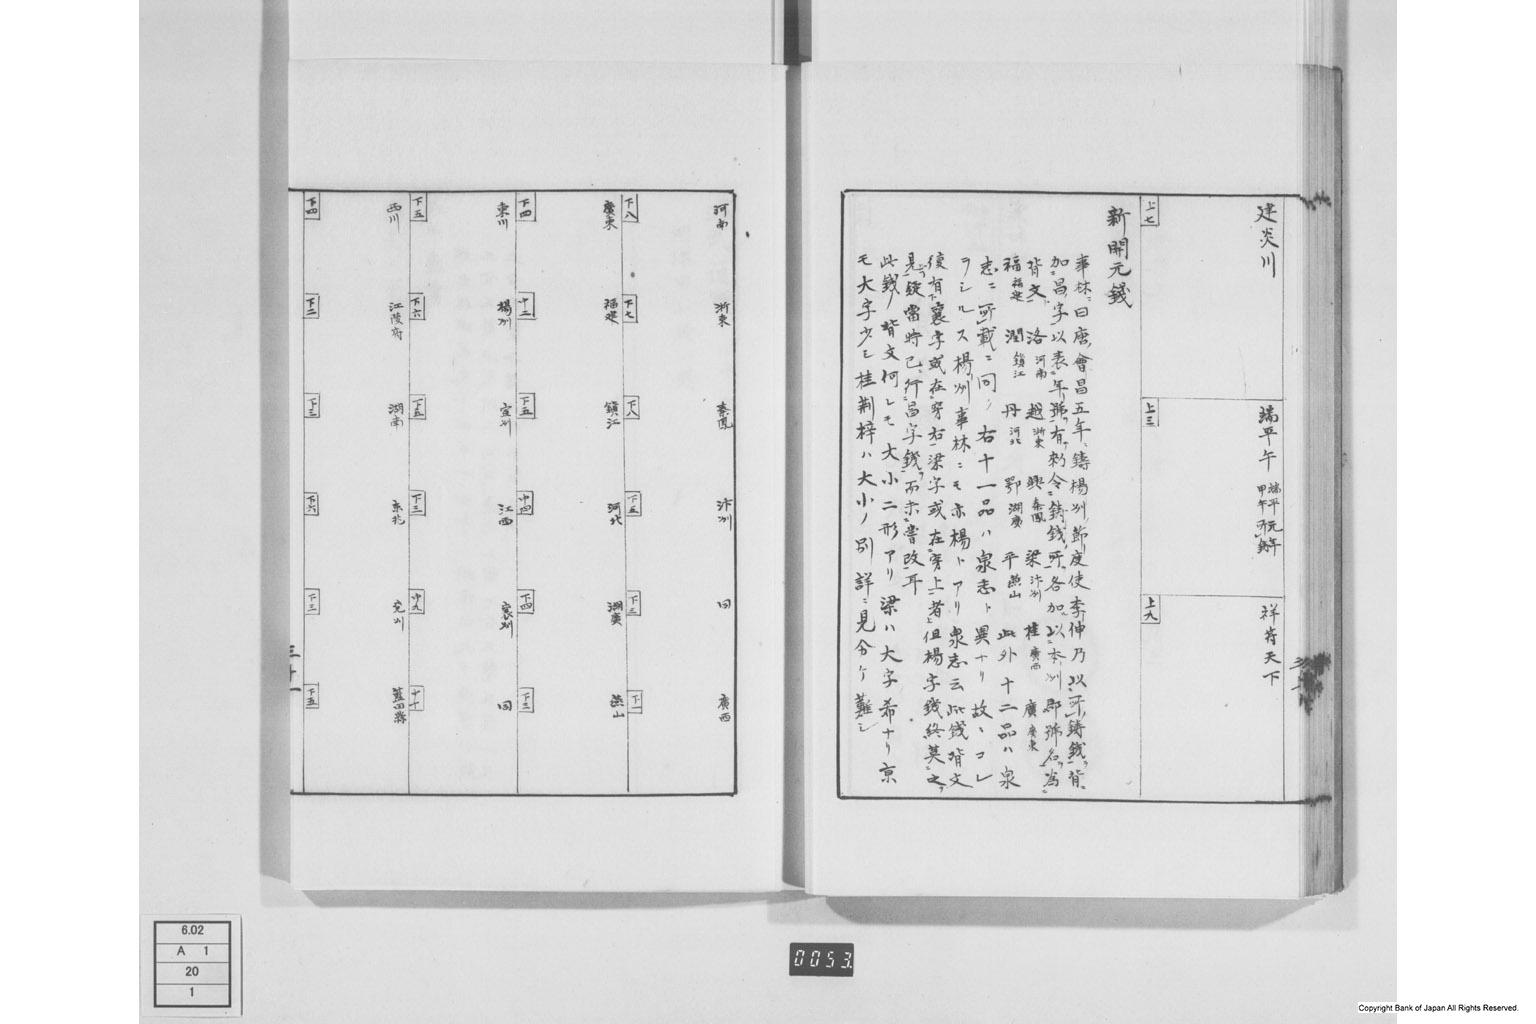 建炎川
上七
端平午 端平元年
甲午所鋳
上三
祥符天下
上九
新開元錢
事林ニ曰唐會昌五年鋳楊州節度使李伸乃以所鋳錢背ニ
加昌字以表年號有勅令鋳錢所各加以本州郡號名為
背文 洛 河南 越 浙東 興 秦鳳 梁 汴州 桂 廣西 廣 廣東
福 福建 潤 鎮江 丹 河北 鄂 湖廣 平 燕山 此外十二品ハ泉
志ニ所載ニ同シ右十一品ハ泉志ト異ナリ故ニコレ
ヲシルス楊州事林ニモ亦楊トアリ泉志云此錢背文
復有襄字或在穿右梁字或在穿上者但楊字錢終莫之
見疑當時已行昌字錢而不曽改耳
此錢ノ背文何レモ大小二形アリ梁ハ大字希ナリ京
モ大字少シ桂荆梓ハ大小ノ別詳ニ見分ケ難シ
河南
浙東
秦鳳
汴州
同
廣西
下八
廣東
下七
福建
下八
鎮江
下五
河北
下三
湖廣
下一
燕山
下四
東川
中二
楊州
下五
宣州
中四
江西
下四
襄州
下三
同
下五
西川
下六
江陵府
下五
湖南
下三
京兆
中九
兖州
十十
藍田縣
下四
下二
下三
下六
下三
下五
三十一
6.02
A 1
20
1
0053
Copyright Bank of Japan All Rights Reserved.